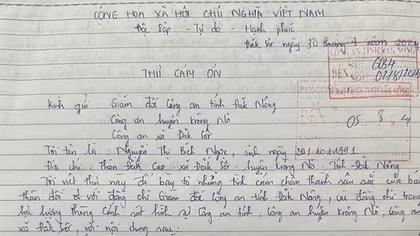 CỘNG HOA XÃ HỘI CHỦ NGHĨA VIỆT NAM
Độc lập - Tự do - Hạnh phúc
Đắk Sôr ngày 30 tháng 7 năm 2024
THƯ CẢM ƠN
Kính gửi Giám đốc Công an tỉnh Đắk Nông
Công an huyện Krông Nô
Công an xã Đắk Sôr
05. 8. 4
Tôi tên là: Nguyễn Thị Bích Ngọc, sinh ngày 20.10.1991
Địa chỉ: Thôn Đắk Cao - xã Đắk Sôr - huyện Krông Nô - Tỉnh Đắk Nông
Tôi viết thư này để bày tỏ những tình cảm chân thành sâu sắc của bản
thân đối với đồng chí Giám đốc Công an tỉnh Đắk Nông, các đồng chí trong
lực lượng phòng cảnh sát hình sự Công an tỉnh, Công an huyện Krông Nô, Công an
xã Đắk Sôr, với nội dung sau: